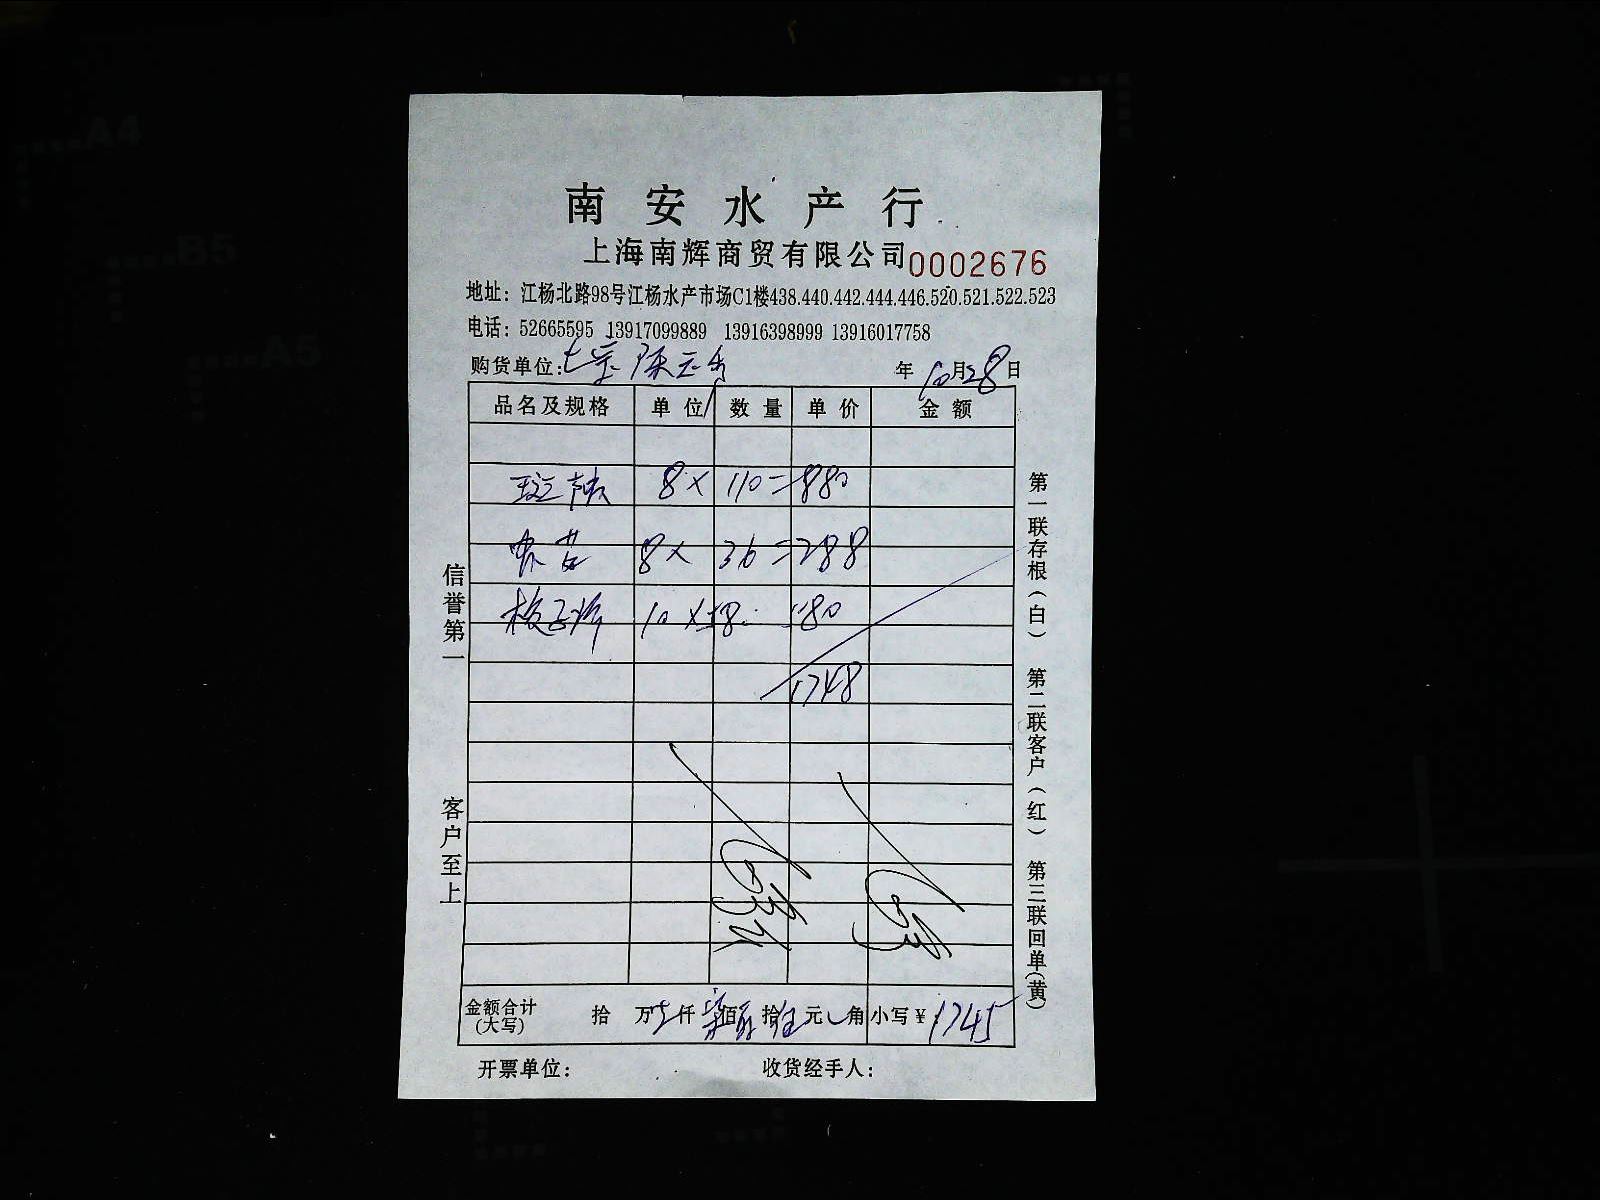 南安水产行
上海南辉商贸有限公司 0002676
地址：江杨北路98号江杨水产市场C1楼438.440.442.444.446.520.521.522.523
电话：52665595 13917099889 13916398999 13916017758
购货单位： 年 10月28日
品名及规格 单位 数量 单价 金额
8× 110=880
8× 36=288
10×58 580
1748
金额合计(大写) 拾 万 仟 佰 拾 元 角 小写¥ 1745
开票单位： 收货经手人：
信誉第一
客户至上
第一联存根(白) 第二联客户(红) 第三联回单(黄)